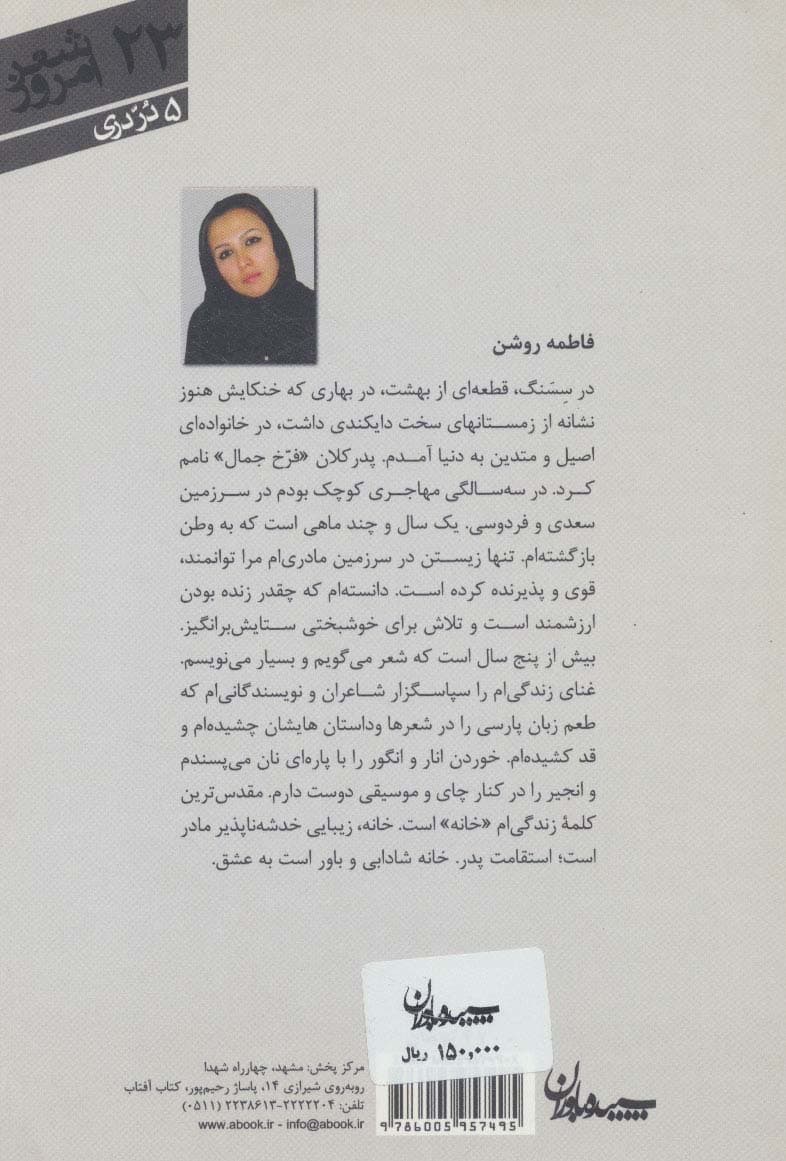 ۲۳ شعر امروز
۵ دُرّ دری
فاطمه روشن
در سِسَنگ، قطعه‌ای از بهشت، در بهاری که خنکایش هنوز
نشانه از زمستانهای سخت دایکندی داشت، در خانواده‌ای
اصیل و متدین به دنیا آمدم. پدرکلان «فرّخ جمال» نامم
کرد. در سه‌سالگی مهاجری کوچک بودم در سرزمین
سعدی و فردوسی. یک سال و چند ماهی است که به وطن
بازگشته‌ام. تنها زیستن در سرزمین مادری‌ام مرا توانمند،
قوی و پذیرنده کرده است. دانسته‌ام که چقدر زنده بودن
ارزشمند است و تلاش برای خوشبختی ستایش‌برانگیز.
بیش از پنج سال است که شعر می‌گویم و بسیار می‌نویسم.
غنای زندگی‌ام را سپاسگزار شاعران و نویسندگانی‌ام که
طعم زبان پارسی را در شعرها وداستان هایشان چشیده‌ام و
قد کشیده‌ام. خوردن انار و انگور را با پاره‌ای نان می‌پسندم
و انجیر را در کنار چای و موسیقی دوست دارم. مقدس‌ترین
کلمهٔ زندگی‌ام «خانه» است. خانه، زیبایی خدشه‌ناپذیر مادر
است؛ استقامت پدر. خانه شادابی و باور است به عشق.
سپیده باوران
۱۵۰,۰۰۰ ریال
سپیده باوران
مرکز پخش: مشهد، چهارراه شهدا
روبه‌روی شیرازی ۱۴، پاساژ رحیم‌پور، کتاب آفتاب
تلفن: ۲۲۲۲۲۰۴-۲۲۳۸۶۱۳ (۰۵۱۱)
www.abook.ir - info@abook.ir
9 786005 957495